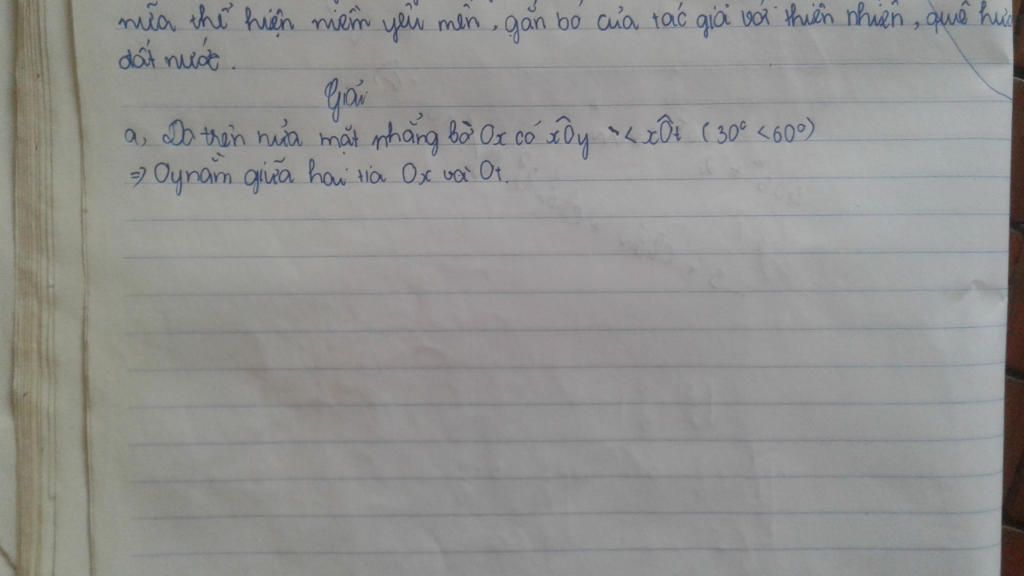 nữa thể hiện niềm yêu mến, gắn bó của tác giả với thiên nhiên, quê hươ
đất nước.
Giải
a, Do trên nửa mặt phẳng bờ Ox có xÔy < xÔt (30° < 60°)
=> Oy nằm giữa hai tia Ox và Ot.